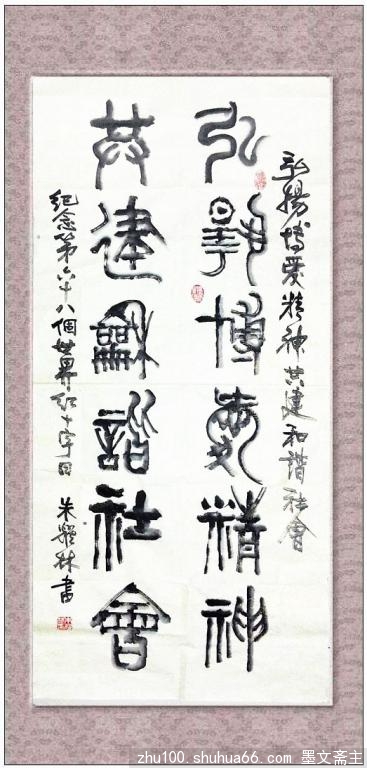 弘揚博愛精神共建和諧社會
弘揚博愛精神
共建龢諧社會
紀念第六十八個世界紅十字日
朱 林書
zhu100.shuhua66.com 墨文斋主